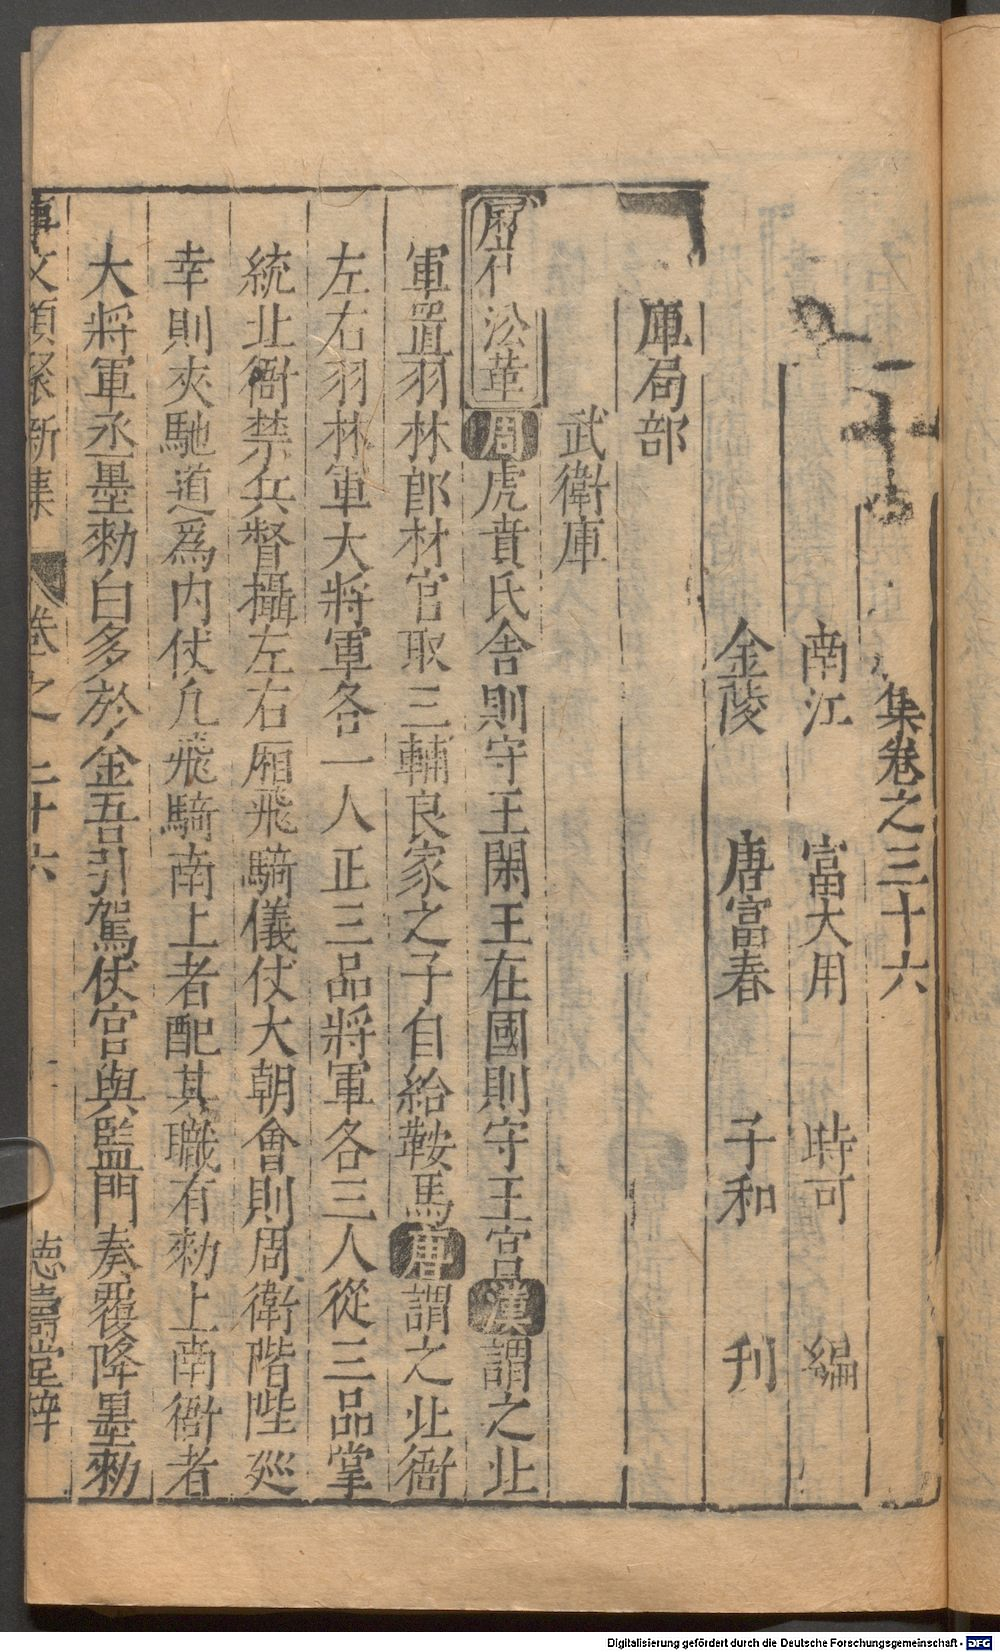 集卷之三十六
南江 富大用 時可 編
金陵 唐富春 子和 刋
庫局部
武衛庫
歷代㳂革 周虎賁氏舍則守王閑王在國則守王宮漢謂之北
軍置羽林郎材官取三輔良家之子自給鞍馬唐謂之北衙
左右羽林軍大將軍各一人正三品將軍各三人從三品掌
統北衙禁兵督攝左右厢飛騎儀仗大朝會則周衛階陛廵
幸則夾馳道爲内仗凢飛騎南上者配其職有勑上南衙者
大將軍丞墨勑白多於金吾引駕仗官與監門奏覆降墨勑
事文類聚新集 卷之三十六 德壽堂梓
Digitalisierung gefördert durch die Deutsche Forschungsgemeinschaft - DFG